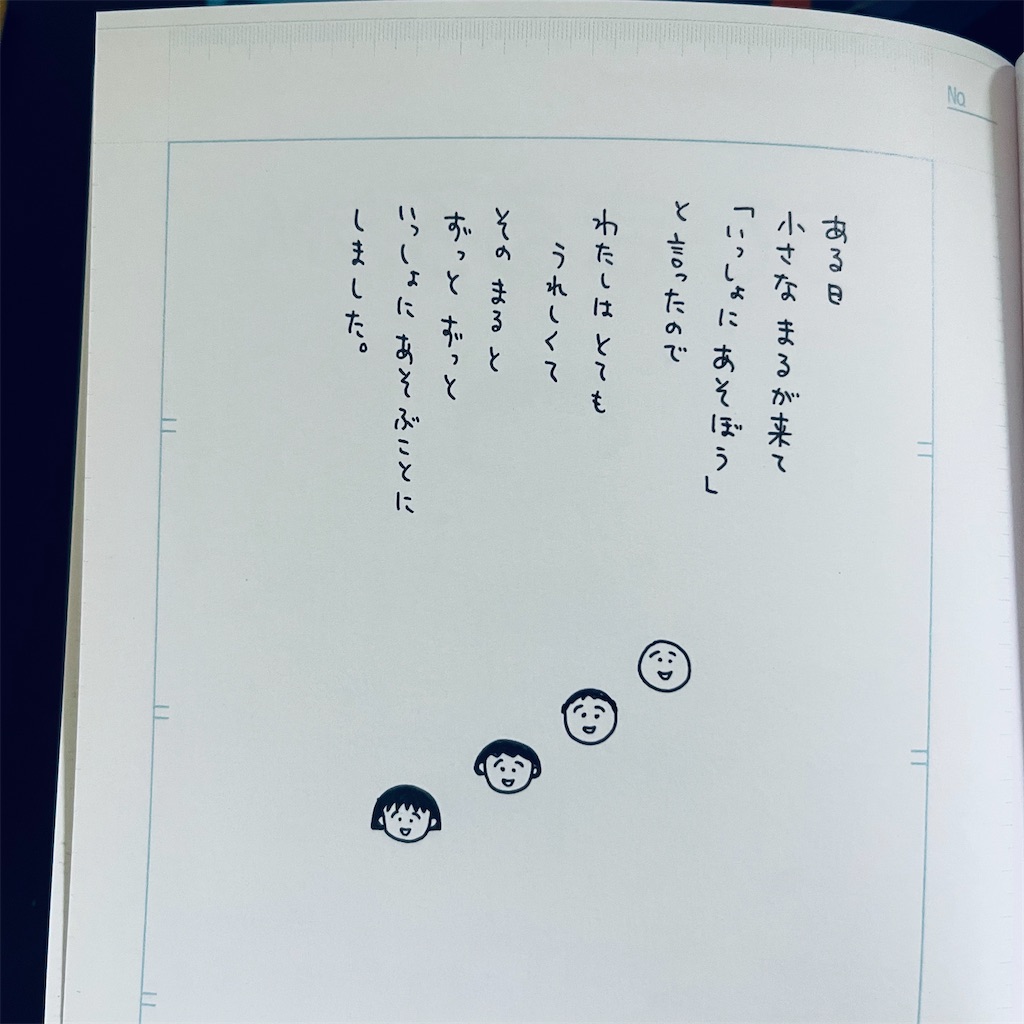 ある日
小さな まるが来て
「いっしょに あそぼう」
と言ったので
わたしは とても
うれしくて
その まると
ずっと ずっと
いっしょに あそぶことに
しました。
No